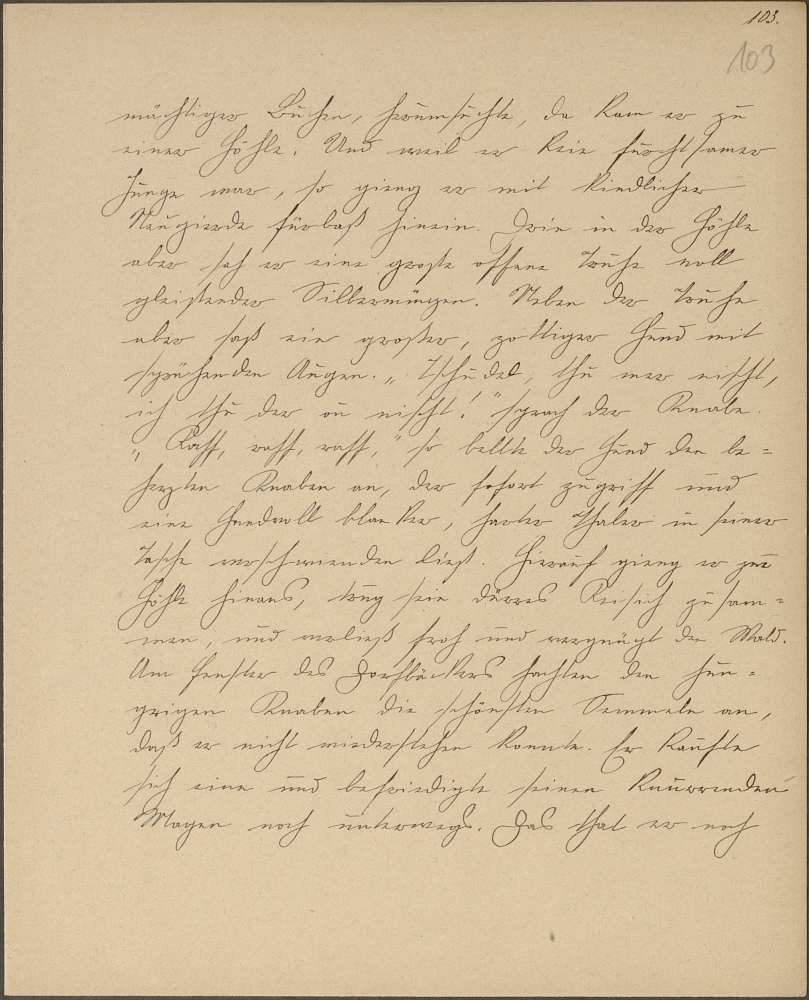 103.
103
mächtiger Buchen, herumsuchte, da kam er zu
einer Höhle. Und weil er kein furchtsamer
Junge war, so gieng er mit kindlicher
Neugierde fürbaß hinein. Drin in der Höhle
aber sah er eine große offene Truhe voll
gleißender Silbermünzen. Neben der Truhe
aber saß ein großer, zottiger Hund mit
sprühenden Augen. „Tschudel, thu mer nischt,
ich thu der au nischt!" sprach der Knabe.
„Raff, raff, raff," so bellte der Hund den be=
herzten Knaben an, der sofort zugriff und
eine Handvoll blanker, harter Thaler in seiner
Tasche verschwinden ließ. Hierauf gieng er zur
Höhle hinaus, trug sein dürres Reisich zusam=
men, und verließ froh und vergnügt den Wald.
Am Fenster des Dorfbäckers lachten den hun=
grigen Knaben die schönsten Semmeln an,
daß er nicht widerstehen konnte. Er kaufte
sich eine und befriedigte seinen knurrenden
Magen noch unterwegs. Das that er noch